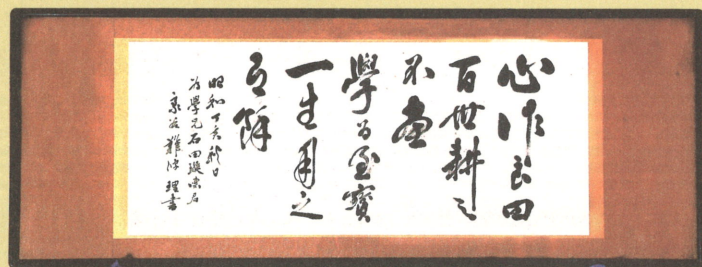 心作良田
百世耕之
不盡
學為至寶
一生用之
有餘
昭和丁亥秋日
為學兄石田
難波理書